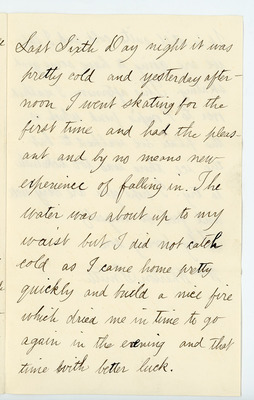 Last Sixth Day night it was
pretty cold and yesterday after-
noon I went skating for the
first time and had the pleas-
ant and by no means new
experience of falling in. The
water was about up to my
waist but I did not catch
cold as I came home pretty
quickly and build a nice fire
which dried me in time to go
again in the evening and that
time with better luck.